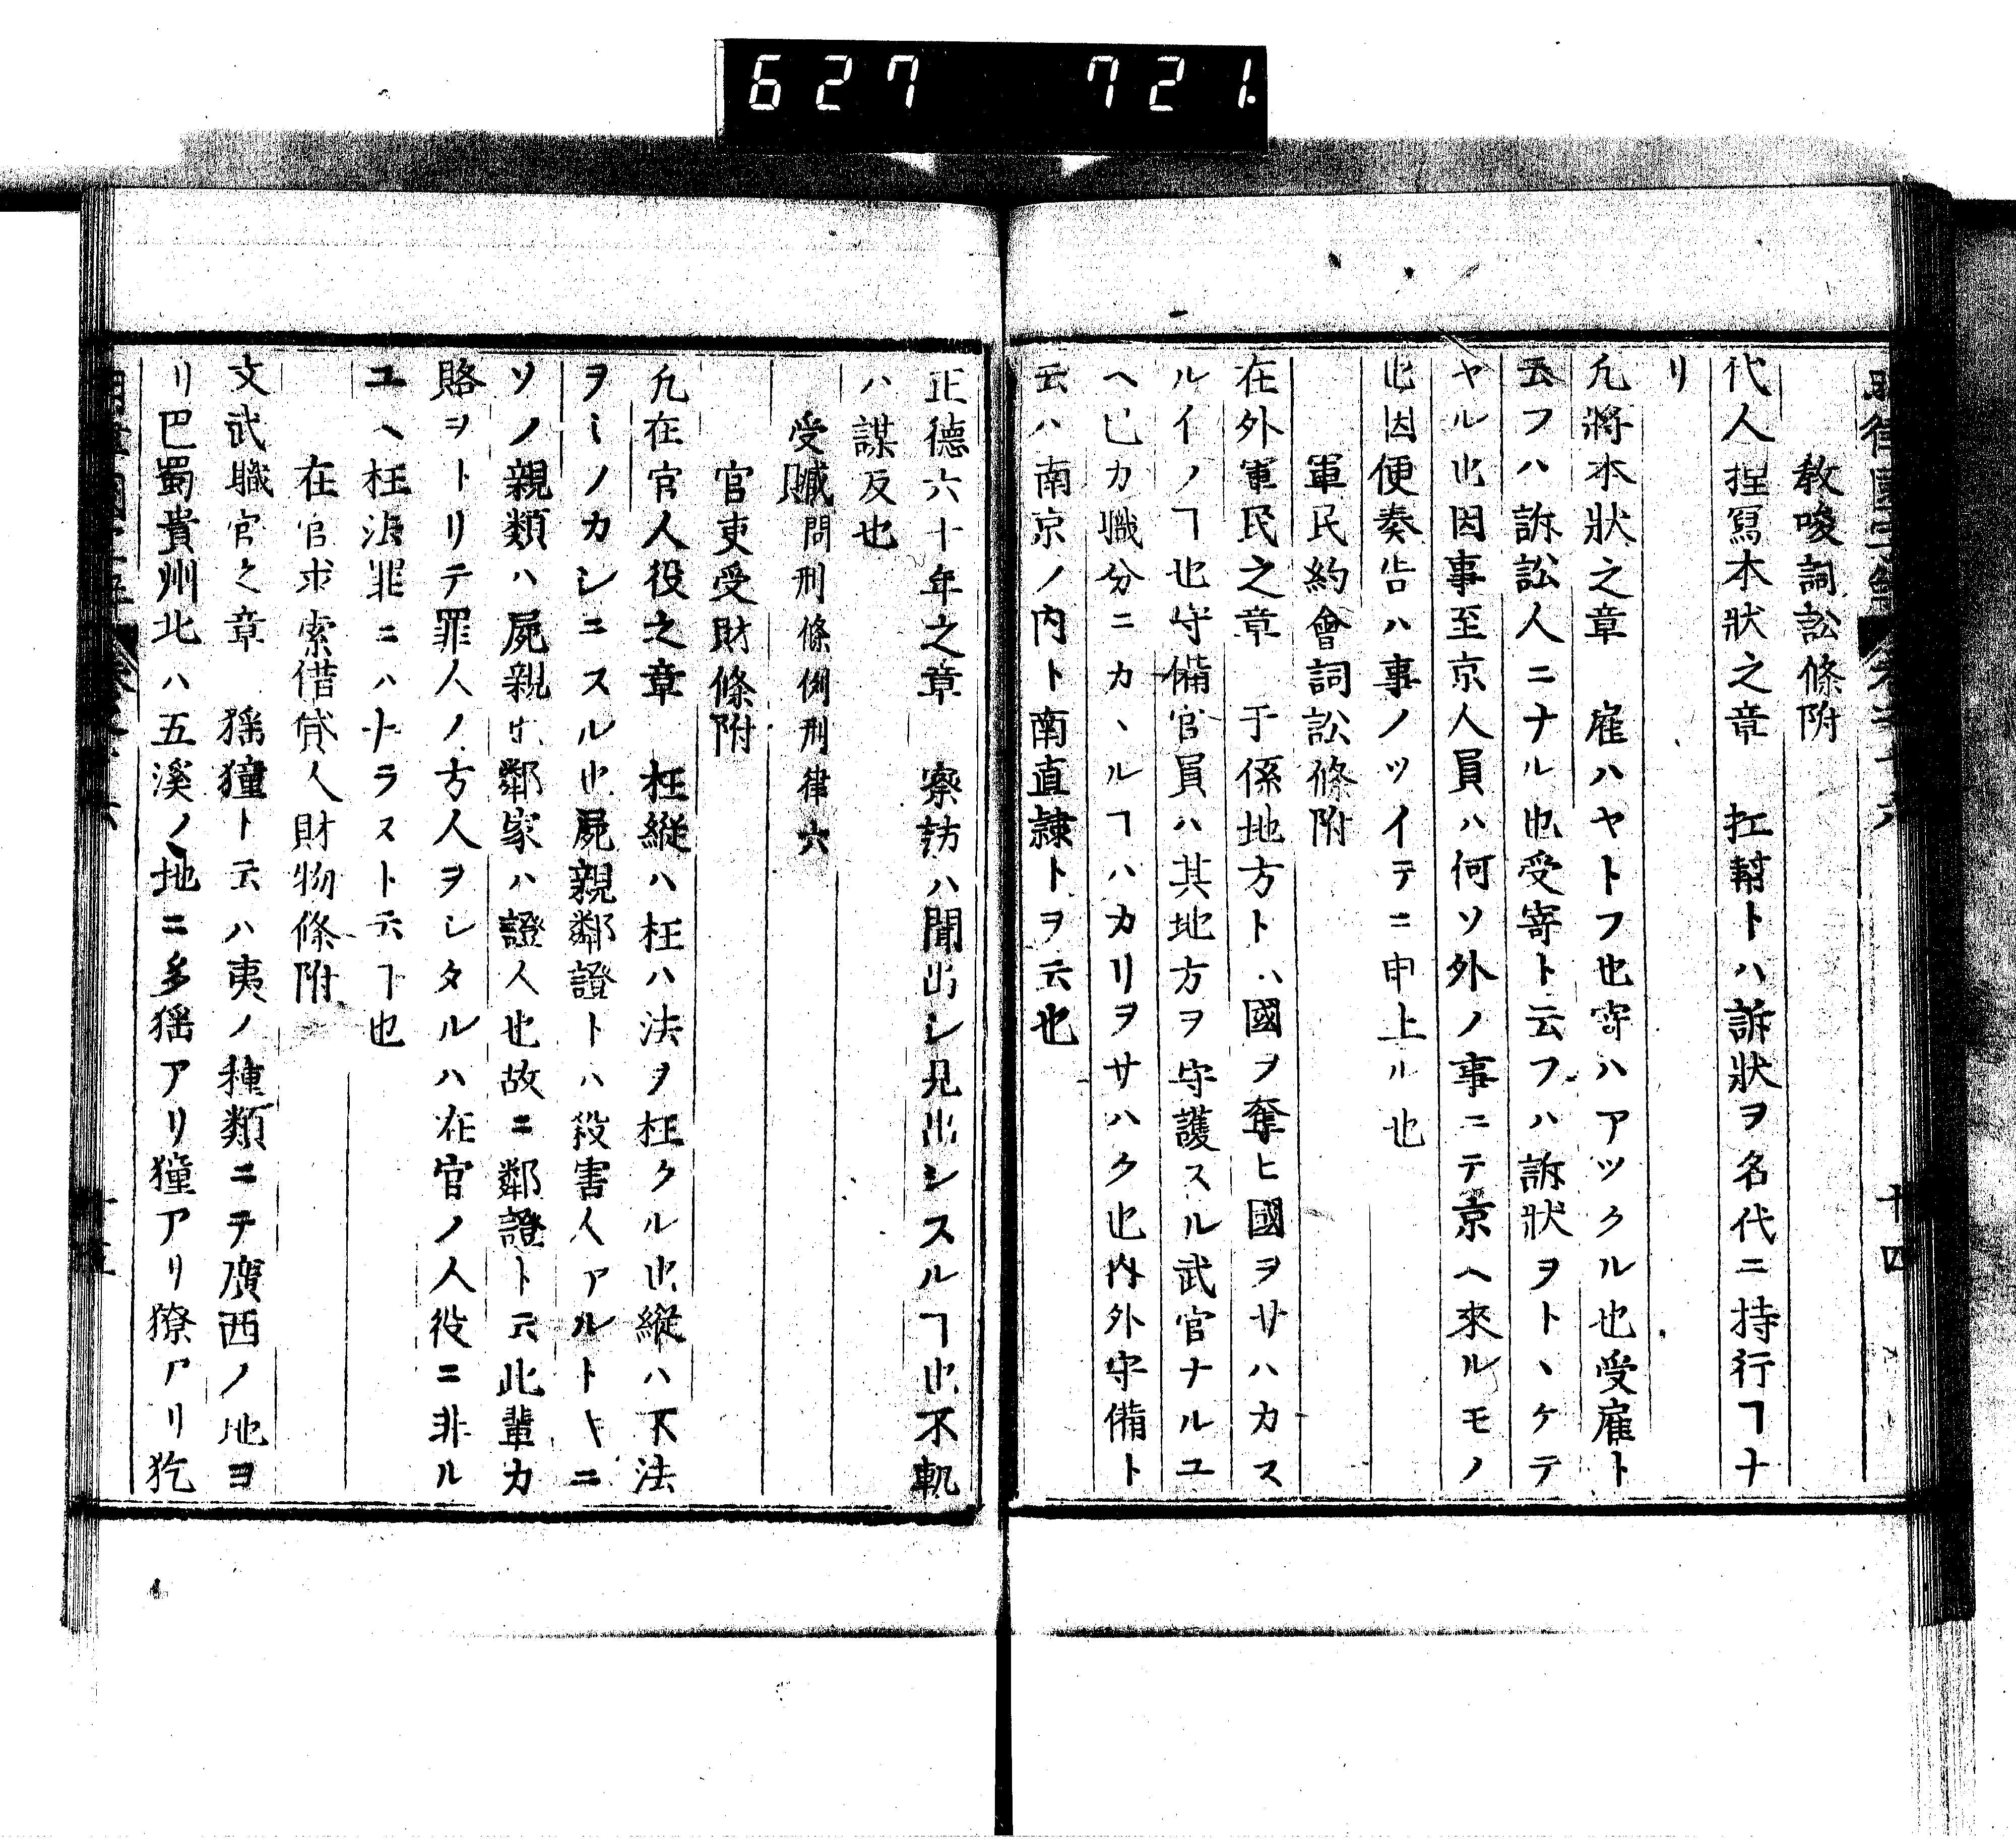 627 721
教唆詞訟條附
代人捏寫本狀之章　扛幇トハ訴狀ヲ名代ニ持行ヿナ
リ
凢將本狀之章　雇ハヤトフ也寄ハアツクル也受雇ト
云フハ訴訟人ニナル也受寄ト云フハ訴狀ヲトヽケテ
ヤル也因事至京人員ハ何ソ外ノ事ニテ京ヘ來ルモノ
也因便奏告ハ事ノツイテニ申上ル也
軍民約會詞訟條附
在外軍民之章　于係地方トハ國ヲ奪ヒ國ヲサハカス
ルイノヿ也守備官員ハ其地方ヲ守護スル武官ナルユ
ヘ已カ職分ニカヽルヿハカリヲサハク也内外守備ト
云ハ南京ノ内ト南直隷トヲ云也
十四
正德六十年之章　察訪ハ聞出シ見出シスルヿ也不軌
ハ謀反也
受贓問刑條例刑律六
官吏受財條附
凢在官人役之章　枉縱ハ枉ハ法ヲ枉クル也縱ハ不法
ヲミノカシニスル也屍親鄰證トハ殺害人アルトキニ
ソノ親類ハ屍親也鄰家ハ證人也故ニ鄰證ト云此輩カ
賂ヲトリテ罪人ノ方人ヲシタルハ在官ノ人役ニ非ル
ユヘ枉法罪ニハナラスト云ヿ也
在官求索借貸人財物條附
文武職官之章　猺獞ト云ハ夷ノ種類ニテ廣西ノ地ヨ
リ巴蜀貴州北ハ五溪ノ地ニ多猺アリ獞アリ獠アリ犵